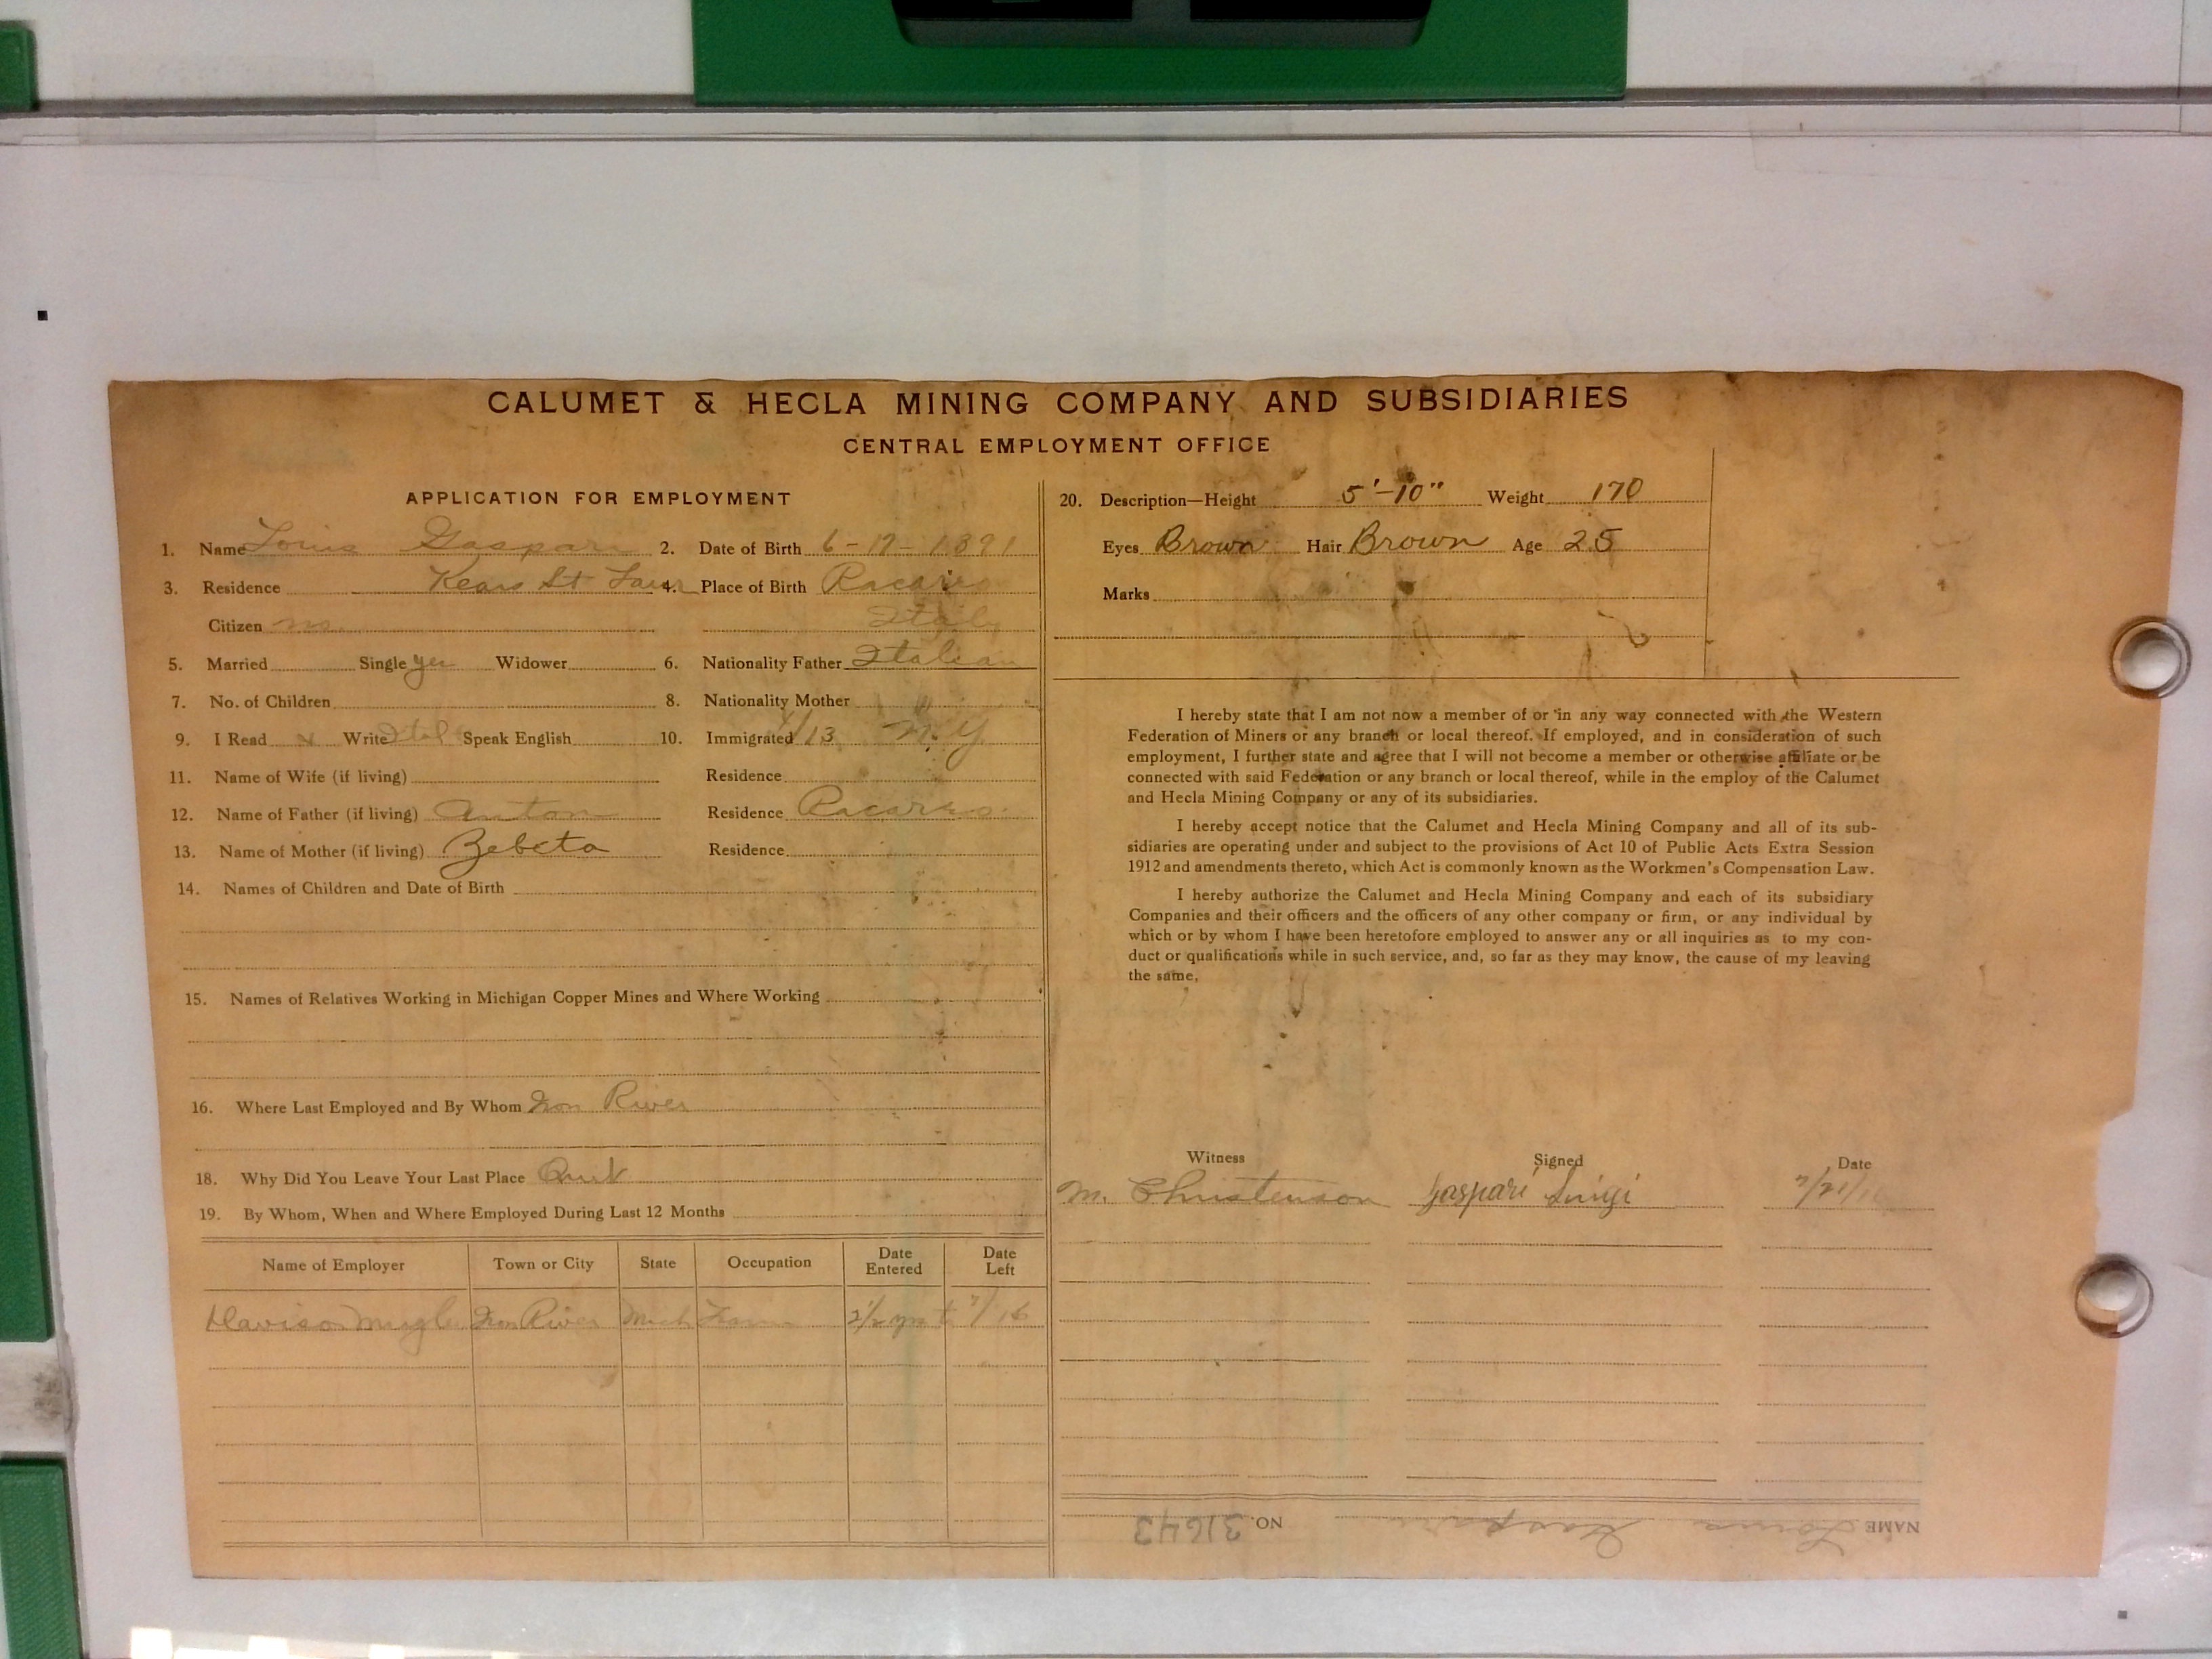 CALUMET & HECLA MINING COMPANY AND SUBSIDIARIES
CENTRAL EMPLOYMENT OFFICE
APPLICATION FOR EMPLOYMENT
1. Name Louis Gaspari 2. Date of Birth 6-17-1891
3. Residence Kears St 4. Place of Birth
Citizen no Italy
5. Married Single yes Widower 6. Nationality Father Italian
7. No. of Children 8. Nationality Mother "
9. I Read x Write Ital Speak English 10. Immigrated /13 N.Y
11. Name of Wife (if living) Residence
12. Name of Father (if living) Anton Residence
13. Name of Mother (if living) Zebeta Residence
14. Names of Children and Date of Birth
15. Names of Relatives Working in Michigan Copper Mines and Where Working
16. Where Last Employed and By Whom Iron River
18. Why Did You Leave Your Last Place Quit
19. By Whom, When and Where Employed During Last 12 Months
Name of Employer Town or City State Occupation Date Entered Date Left
Iron River Mich 2 1/2 yrs 7/16
20. Description—Height 5'-10" Weight 170
Eyes Brown Hair Brown Age 25
Marks
I hereby state that I am not now a member of or in any way connected with the Western
Federation of Miners or any branch or local thereof. If employed, and in consideration of such
employment, I further state and agree that I will not become a member or otherwise affiliate or be
connected with said Federation or any branch or local thereof, while in the employ of the Calumet
and Hecla Mining Company or any of its subsidiaries.
I hereby accept notice that the Calumet and Hecla Mining Company and all of its sub-
sidiaries are operating under and subject to the provisions of Act 10 of Public Acts Extra Session
1912 and amendments thereto, which Act is commonly known as the Workmen's Compensation Law.
I hereby authorize the Calumet and Hecla Mining Company and each of its subsidiary
Companies and their officers and the officers of any other company or firm, or any individual by
which or by whom I have been heretofore employed to answer any or all inquiries as to my con-
duct or qualifications while in such service, and, so far as they may know, the cause of my leaving
the same.
Witness Signed Date
M. Christenson Gaspari Luigi 7/21/16
NAME Louis Gaspari NO. 31643